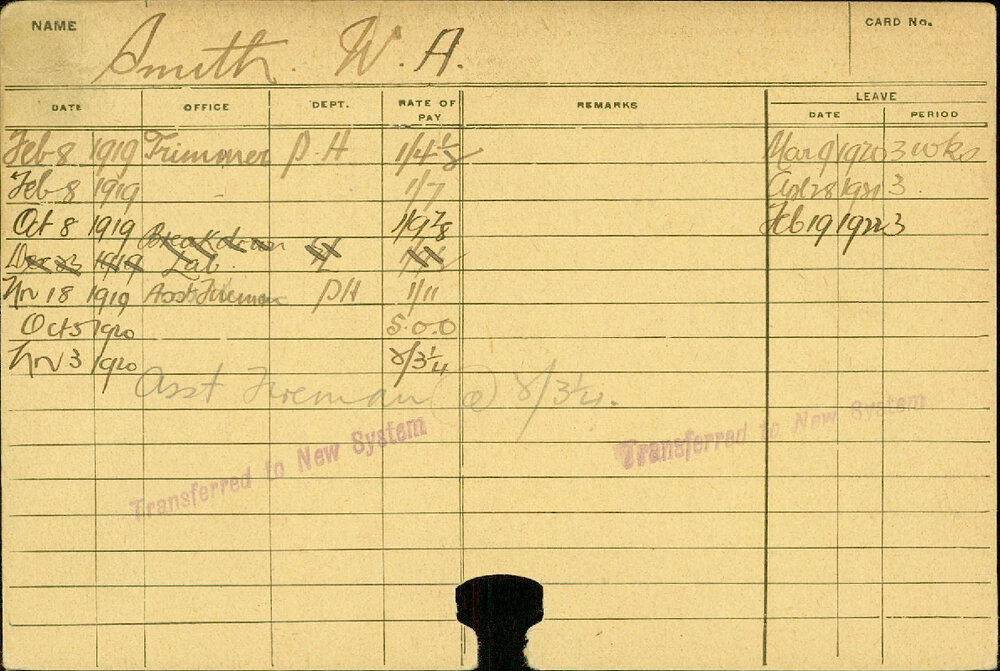 NAME Smith. W. A. CARD No.
DATE OFFICE DEPT. RATE OF PAY REMARKS LEAVE DATE PERIOD
Feb 8 1919 Trimmer P.H 1/4½ Mar 9 1920 3 wks
Feb 8 1919 - 1/7 1921 3
Oct 8 1919 1/9⅞ Feb 19 1922 3
Breakdown
Dec 23 1919 Lab.
Nov 18 1919 Asst Fireman PH 1/11
Oct 5 1920 5.0.0
Nov 3 1920 2/3¼
Asst Fireman @ 2/3¼.
Transferred to New System
Transferred to New System